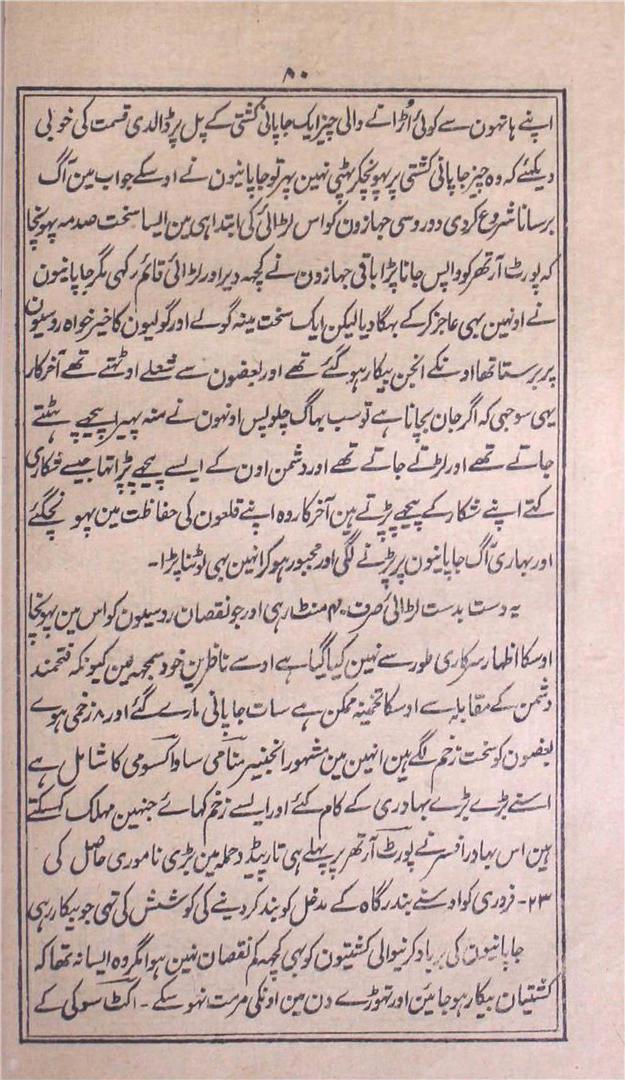 ۸۰
اپنے ہاتھون سے کوئی اڑانے والی چیز ایک جاپانی کشتی کے پل پر ڈالدی قسمت کی خوبی
دیکھئے کہ وہ چیز جاپانی کشتی پر پہونچکر پھٹی نہین پھر تو جاپانیون نے اوسکے جواب مین آگ
برسانا شروع کردی دو روسی جہازون کو اس لڑائی کی ابتدا ہی مین ایسا سخت صدمہ پہونچا
کہ پورٹ آرتھر کو واپس جانا پڑا باقی جہازون نے کچہہ دیر اور لڑائی قائم رکھی مگر جاپانیون
نے اونہین بہی عاجز کرکے بہگا دیا لیکن ایک سخت مینہ گولے اور گولیون کا خیر خواہ روسیون
پر برستا تھا اونکے انجن بیکار ہو گئے تھے اور بعضون سے شعلے اوٹھتے تھے آخرکار
یہی سوجہی کہ اگر جان بچانا ہے تو سب بھاگ چلو پس اونہون نے منہ پھیرا پیچھے ہٹتے
جاتے تھے اور لڑتے جاتے تھے اور دشمن اون کے ایسے پیچھے پڑا تھا جیسے شکاری
کتے اپنے شکار کے پیچھے پڑتے ہین آخرکار وہ اپنے قلعون کی حفاظت مین پہونچگئے
اور بہاری آگ جاپانیون پر پڑنے لگی اور مجبور ہو کر انہین بہی لوٹنا پڑا۔
یہ دست بدست لڑائی صرف ۲۰ منٹ رہی اور جو نقصان روسیون کو اس مین پہونچا
اوسکا اظہار سرکاری طور سے نہین کیا گیا ہے اوسے ناظرین خود سمجہہ لین کیونکہ فتحمند
دشمن کے مقابلہ سے اوسکا تخمینہ ممکن ہے سات جاپانی مارے گئے اور ۸ زخمی ہوے
بعضون کو سخت زخم لگے ہین انہین مین مشہور انجنیر مناحی ساواکسومی کا شامل ہے
اسنے بڑے بڑے بہادری کے کام کئے اور ایسے زخم کہائے جنہین مہلک کہسکتے
ہین اس بہادر افسر نے پورٹ آرتھر پر پہلے ہی تارپیڈو حملہ مین بڑی ناموری حاصل کی
۲۳- فروری کو اوسنے بندرگاہ کے مدخل کو بند کردینے کی کوشش کی تھی جو بیکار رہی
جاپانیون کی برباد کرنیوالی کشتیون کو بہی کچہہ کم نقصان نہین ہوا مگر وہ ایسا نہ تھا کہ
کشتیان بیکار ہو جائین اور تھوڑے دن مین اونکی مرمت نہو سکے۔ اکٹ سوکی کے